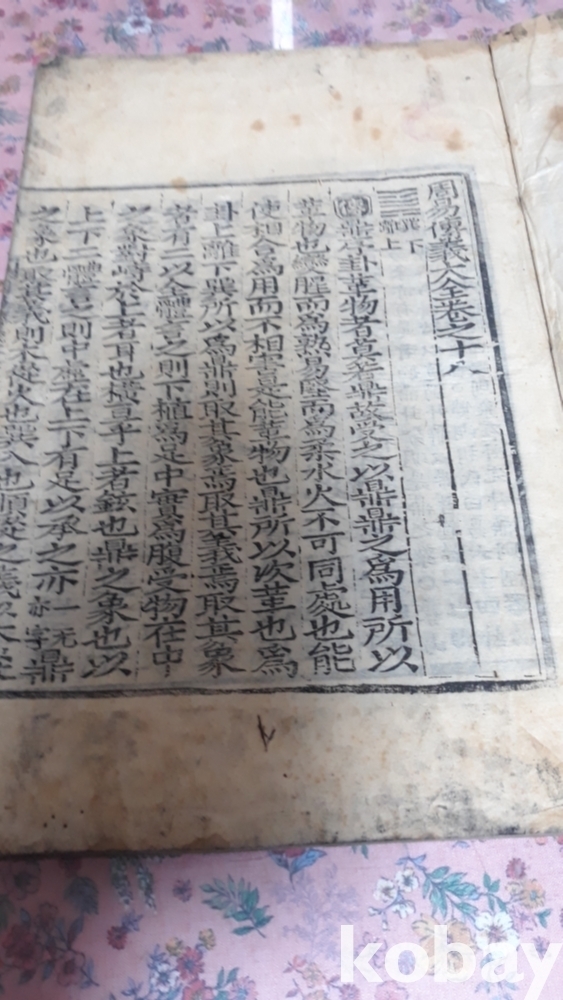 周易傳義大全卷之十八
巽下
離上
傳鼎序卦革物者莫若鼎故受之以鼎鼎之爲用所以
革物也變腥而爲熟易堅而爲柔水火不可同處也能
使相合爲用而不相害是能革物也鼎所以次革也爲
卦上離下巽所以爲鼎則取其象焉取其義焉取其象
者有二以全體言之則下植爲足中實爲腹受物在中
之象對峙於上者耳也橫亘乎上者鉉也鼎之象也以
上下二體言之則中虛在上下有足以承之亦一无亦字鼎
之象也取其義則木從火也巽入也順從之義以木從
kobay